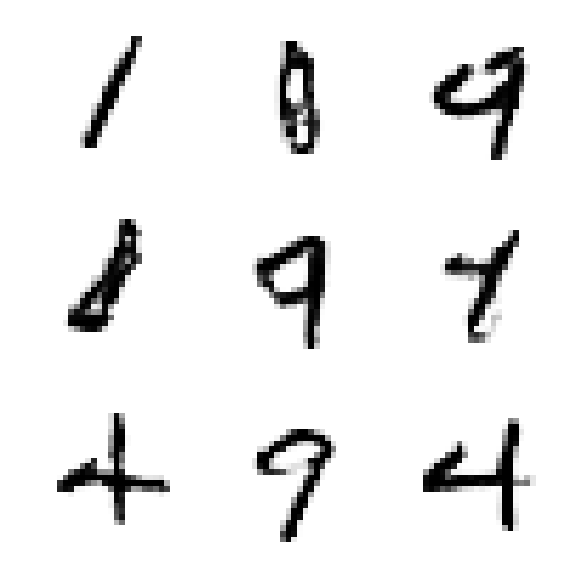 1 8 9
8 9 4
4 9 4